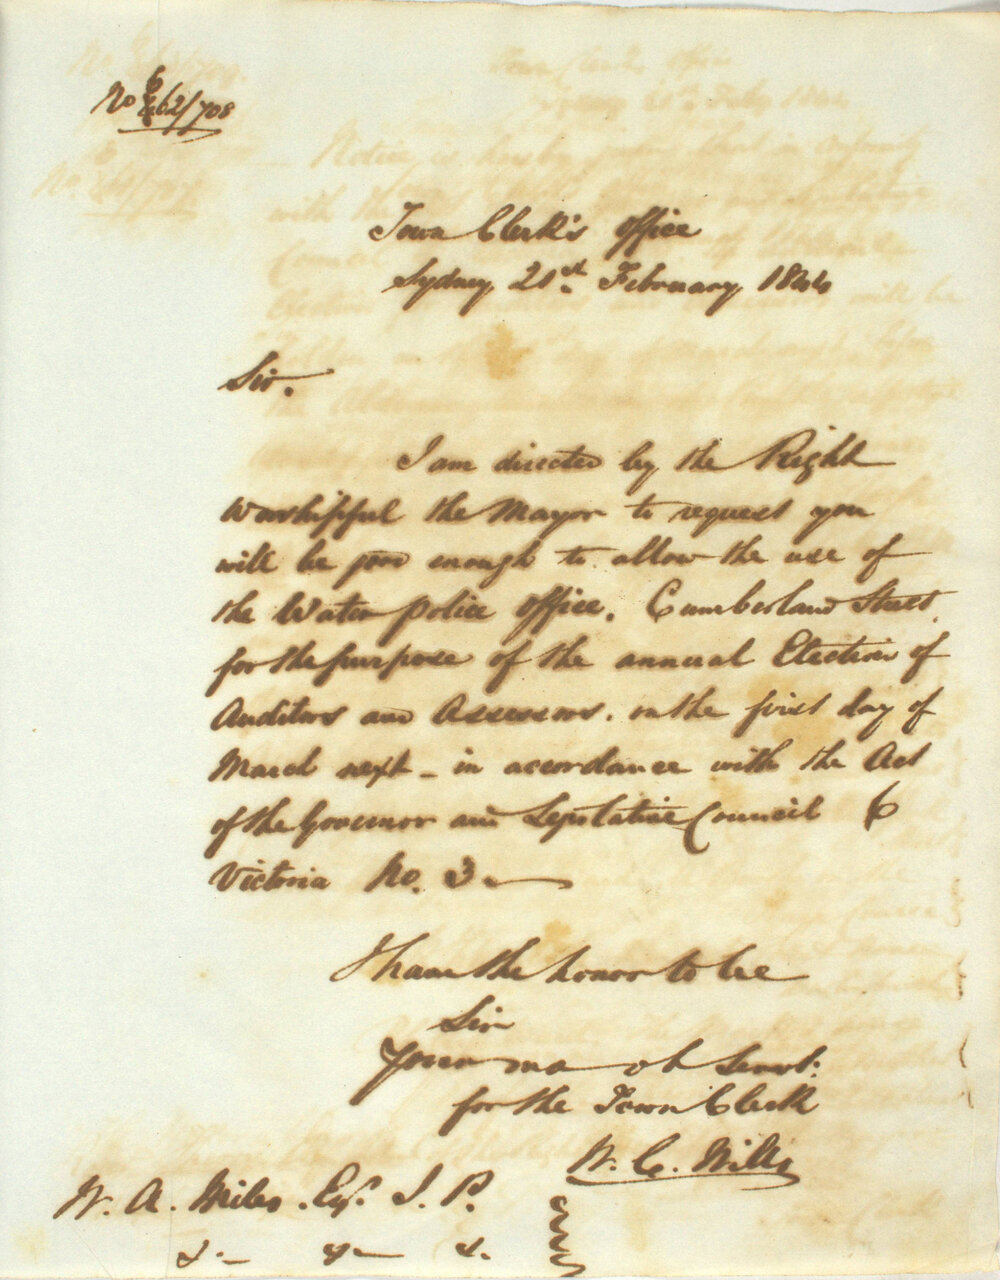 No 62/708
Town Clerk's Office
Sydney 21st February 1844
Sir.
I am directed by the Right
Worshipful the Mayor to request you
will be good enough to allow the use of
the Water police office, Cumberland Street
for the purpose of the annual Election of
Auditors and Assessors. on the first day of
March next – in accordance with the Act
of the Governor and Legislative Council 6
Victoria No. 3 –
I have the honor to be
Sir
Your mo ob Servt:
for the Town Clerk
W. C. Wills
W. A. Miles. Esqr. J. P.